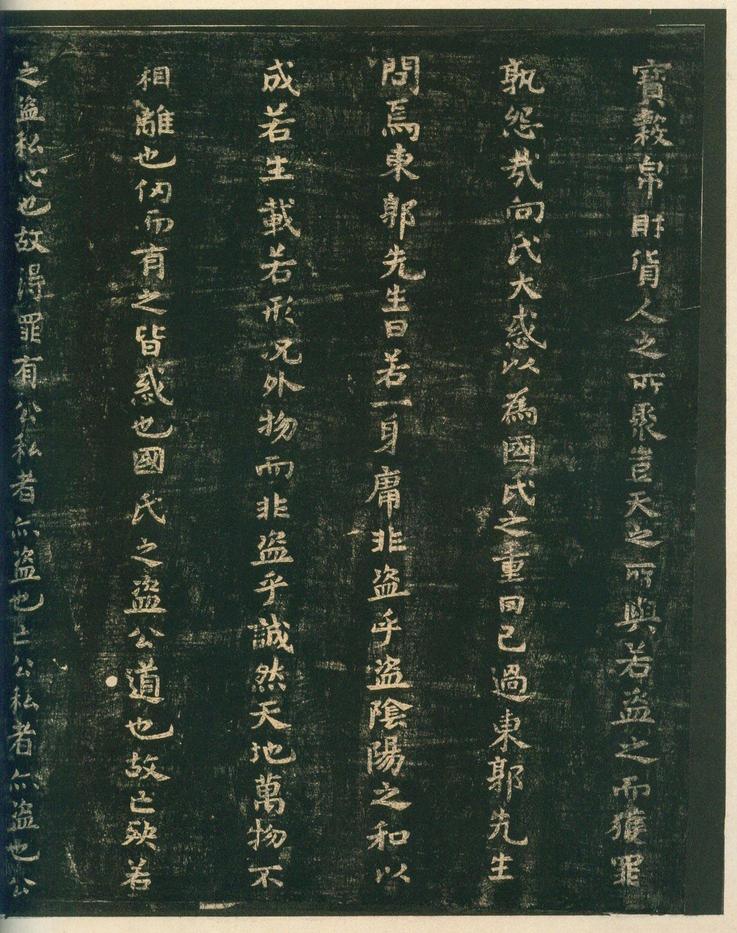 寶穀帛財貨人之所聚豈天之所與若盜之而獲罪
孰怨哉向氏大惑以為國氏之重罔己過東郭先生
問焉東郭先生曰若一身庸非盜乎盜陰陽之和以
成若生載若形況外物而非盜乎誠然天地萬物不
相離也仞而有之皆惑也國氏之盜公道也故亡殃若
之盜私心也故得罪有公私者亦盜也亡公私者亦盜也公